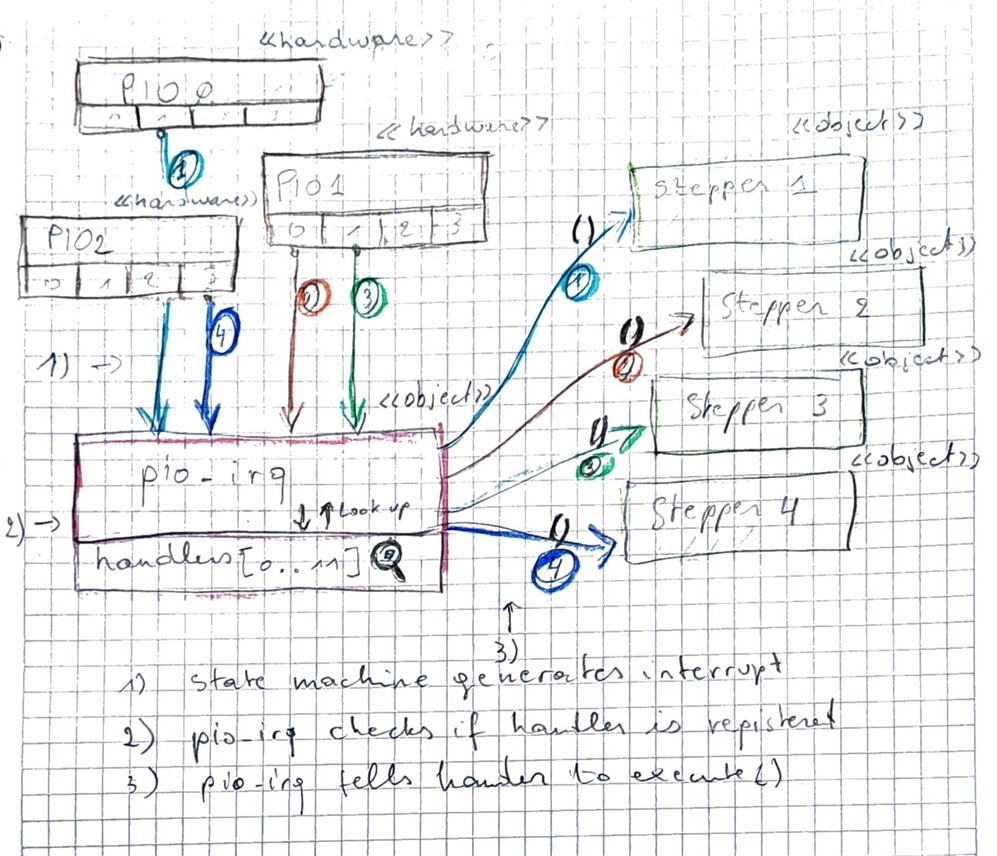 <<hardware>>
PIO 0
0 1 2 3
1
<<hardware>>
PIO1
0 1 2 3
<<hardware>>
PIO2
0 1 2 3
2
3
4
1) ->
<<object>>
pio-irq
↓ ↑ Look up
2) ->
handlers[0..11]
<<object>>
Stepper 1
()
1
<<object>>
Stepper 2
()
2
<<object>>
Stepper 3
()
3
<<object>>
Stepper 4
()
4
↑
3)
1) state machine generates interrupt
2) pio-irq checks if handler is registered
3) pio-irq tells hander to execute()